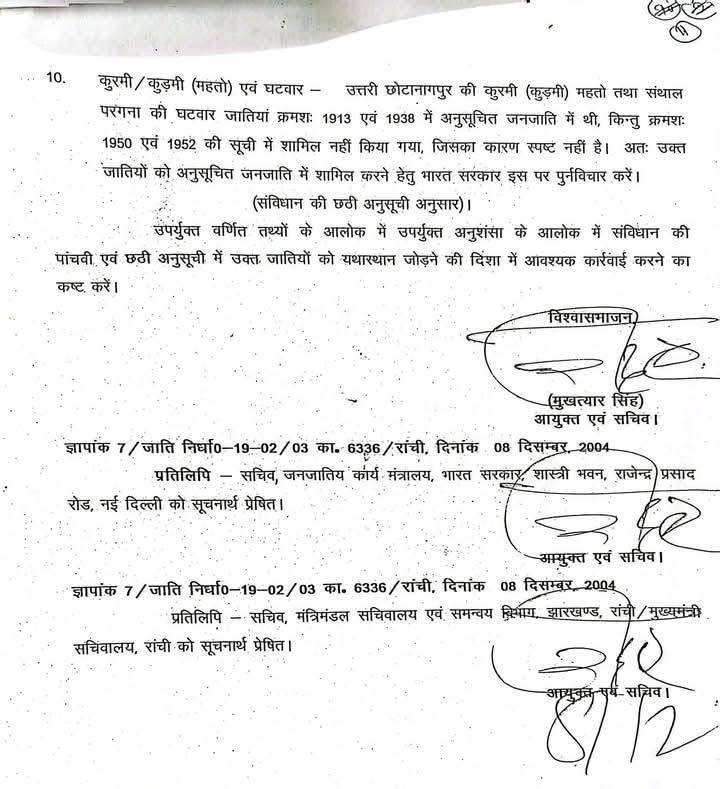 11
10. कुरमी/कुड़मी (महतो) एवं घटवार – उत्तरी छोटानागपुर की कुरमी (कुड़मी) महतो तथा संथाल
परगना की घटवार जातियां क्रमशः 1913 एवं 1938 में अनुसूचित जनजाति में थी, किन्तु क्रमशः
1950 एवं 1952 की सूची में शामिल नहीं किया गया, जिसका कारण स्पष्ट नहीं है। अतः उक्त
जातियों को अनुसूचित जनजाति में शामिल करने हेतु भारत सरकार इस पर पुर्नविचार करें।
(संविधान की छठी अनुसूची अनुसार)।
उपर्युक्त वर्णित तथ्यों के आलोक में उपर्युक्त अनुशंसा के आलोक में संविधान की
पांचवी एवं छठी अनुसूची में उक्त जातियों को यथास्थान जोड़ने की दिशा में आवश्यक कार्रवाई करने का
कष्ट करें।
विश्वासभाजन
(मुखत्यार सिंह)
आयुक्त एवं सचिव।
ज्ञापांक 7/जाति निर्धा0–19–02/03 का. 6336/रांची, दिनांक 08 दिसम्बर, 2004
प्रतिलिपि – सचिव, जनजातिय कार्य मंत्रालय, भारत सरकार, शास्त्री भवन, राजेन्द्र प्रसाद
रोड, नई दिल्ली को सूचनार्थ प्रेषित।
आयुक्त एवं सचिव।
ज्ञापांक 7/जाति निर्धा0–19–02/03 का. 6336/रांची, दिनांक 08 दिसम्बर, 2004
प्रतिलिपि – सचिव, मंत्रिमंडल सचिवालय एवं समन्वय विभाग, झारखण्ड, रांची/मुख्यमंत्री
सचिवालय, रांची को सूचनार्थ प्रेषित।
आयुक्त एवं सचिव।
8/12